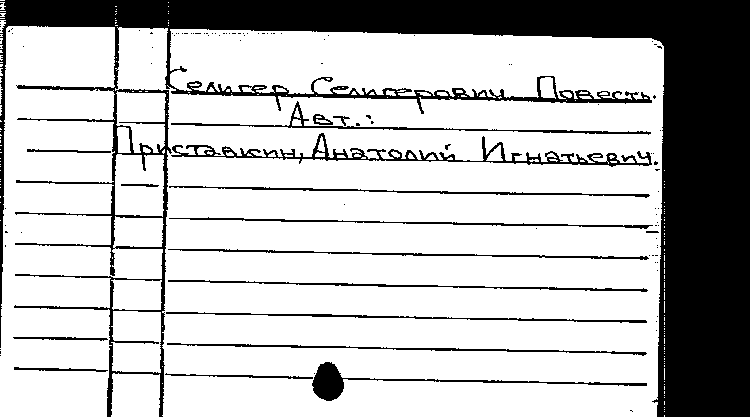 Селигер Селигерович Повесть.
Авт.:
Приставкин, Анатолий Игнатьевич.